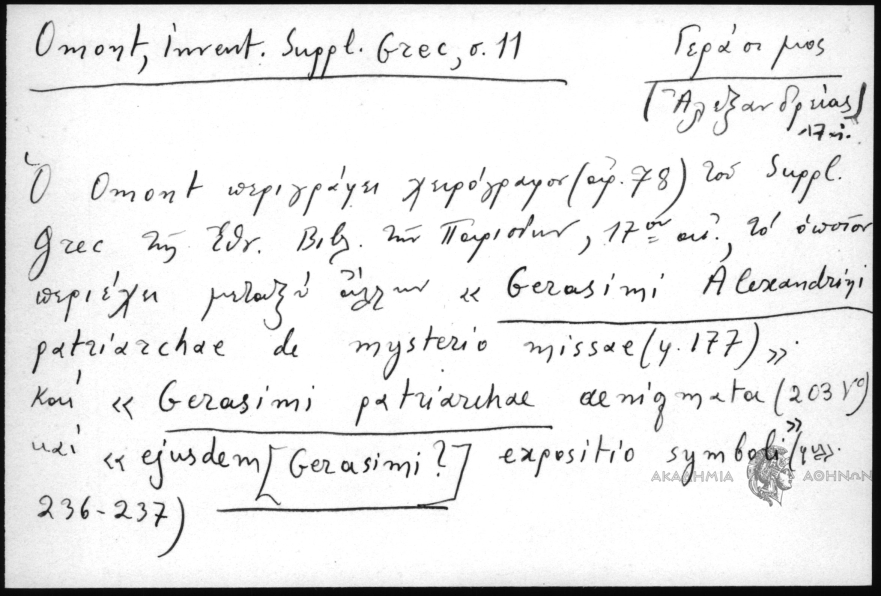 Omont, invent. Suppl. Grec, σ. 11
Γεράσιμος
(Ἀλεξανδρείας)
17 αἰ.
Ὁ Omont περιγράφει χειρόγραφον (ἀρ. 78) τοῦ Suppl.
Grec τῆς Ἐθν. Βιβλ. τῶν Παρισίων, 17ου αἰ., τό ὁποῖον
περιέχει μεταξύ ἄλλων « Gerasimi Alexandrini
patriarchae de mysterio missae (φ. 177) ».
καί « Gerasimi patriarchae aenigmata (203 vº)
καί « ejusdem [Gerasimi?] expositio symboli» (φφ.
236-237)
ΑΚΑΔΗΜΙΑ ΑΘΗΝΩΝ